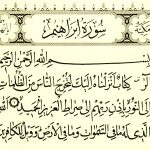 سورة ابراهيم
بسم الله الرحمن الرحيم
الر كتاب أنزلناه إليك لتخرج الناس من الظلمات
إلى النور بإذن ربهم إلى صراط العزيز الحميد
الله الذي له ما في السموات وما في الأرض وويل للكافرين